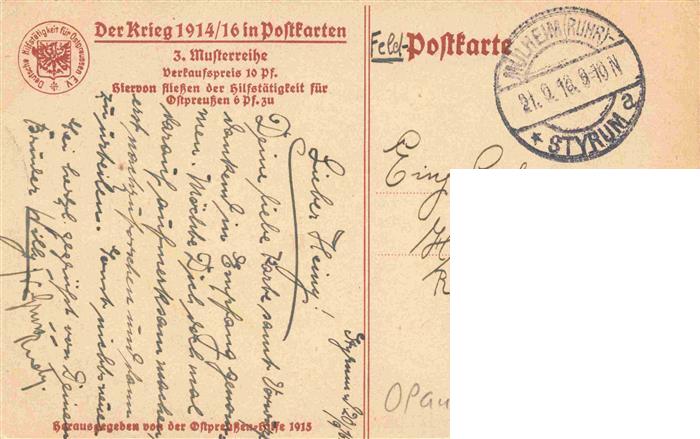 Der Krieg 1914/16 in Postkarten
3. Musterreihe
Verkaufspreis 10 Pf.
Hiervon fließen der Hilfstätigkeit für
Ostpreußen 6 Pf. zu
Deutsche Hilfstätigkeit für Ostpreußen E.V.
Feld-Postkarte
MÜLHEIM (RUHR)-
21.9.16. 9-10 N
* STYRUM a
Styrum d. 20/9
Lieber Heinz!
Deine liebe Karte samt
dankend in Empfang genom-
men. Möchte Dich doch mal
darauf aufmerksam machen
erst nachzuforschen und dann
zu urteilen. Sonst nichts neues
Sei herzl. gegrüßt von Deinem
Bruder Willy
Herausgegeben von der Ostpreußen-Hilfe 1915